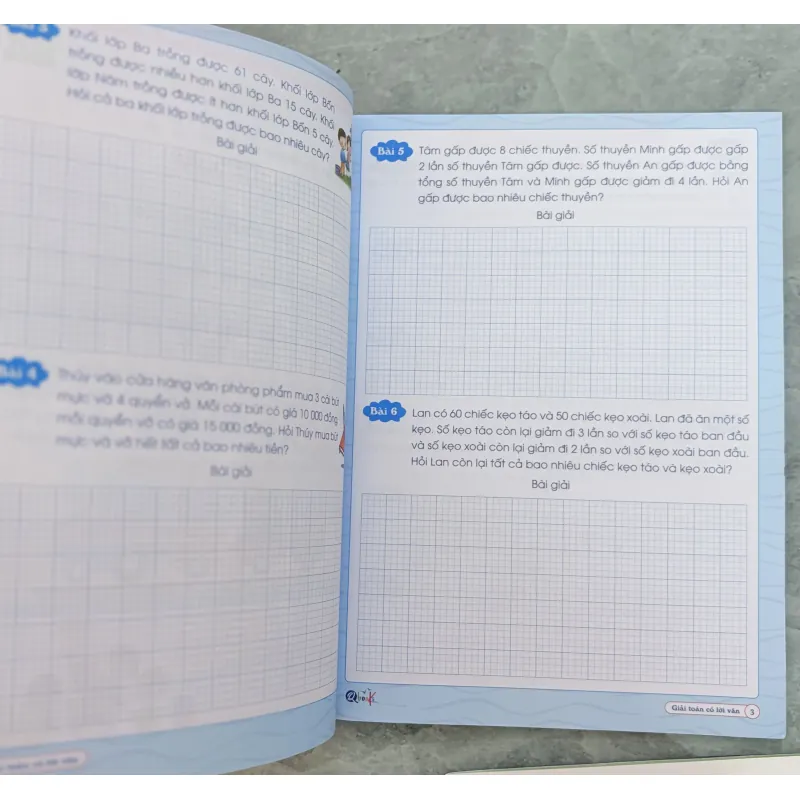 Khối lớp Ba trồng được 61 cây. Khối lớp Bốn
trồng được nhiều hơn khối lớp Ba 15 cây. Khối
lớp Năm trồng được ít hơn khối lớp Bốn 5 cây.
Hỏi cả ba khối lớp trồng được bao nhiêu cây?
Bài giải
Bài 4
Thúy vào cửa hàng văn phòng phẩm mua 3 cái bút
mực và 4 quyển vở. Mỗi cái bút có giá 10 000 đồng,
mỗi quyển vở có giá 15 000 đồng. Hỏi Thúy mua bút
mực và vở hết tất cả bao nhiêu tiền?
Bài giải
Bài 5
Tâm gấp được 8 chiếc thuyền. Số thuyền Minh gấp được gấp
2 lần số thuyền Tâm gấp được. Số thuyền An gấp được bằng
tổng số thuyền Tâm và Minh gấp được giảm đi 4 lần. Hỏi An
gấp được bao nhiêu chiếc thuyền?
Bài giải
Bài 6
Lan có 60 chiếc kẹo táo và 50 chiếc kẹo xoài. Lan đã ăn một số
kẹo. Số kẹo táo còn lại giảm đi 3 lần so với số kẹo táo ban đầu
và số kẹo xoài còn lại giảm đi 2 lần so với số kẹo xoài ban đầu.
Hỏi Lan còn lại tất cả bao nhiêu chiếc kẹo táo và kẹo xoài?
Bài giải
Giải toán có lời văn 3